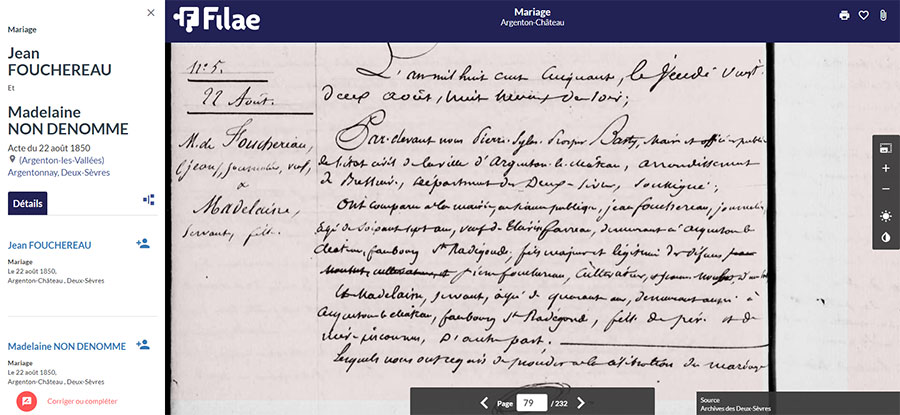 Mariage
Jean
FOUCHEREAU
Et
Madelaine
NON DENOMME
Acte du 22 août 1850
(Argenton-les-Vallées)
Argentonnay, Deux-Sèvres
Détails
Jean FOUCHEREAU
Mariage
Le 22 août 1850,
Argenton-Château , Deux-Sèvres
Madelaine NON DENOMME
Mariage
Le 22 août 1850,
Argenton-Château , Deux-Sèvres
Corriger ou compléter
Filae
Mariage
Argenton-Château
n°. 5.
22 Août.
M. de Fouchereau,
(jean), journalier, veuf,
&
Madelaine,
servante, fille.
L'an mil huit cent cinquante, le jeudi vingt
deux août, huit heures du soir;
Par-devant nous Pierre Barty, Maire et officier public
de l'état civil de la ville d'Argenton-le-château, arrondissement
de Bressuire, département des Deux-Sèvres, soussigné;
Ont comparu à la maison publique, jean fouchereau, journalier
âgé de soixante sept ans, veuf de farreau, demeurant à argenton-le
château, faubourg St Radégonde, fils majeur et légitime de défunts
pierre fouchereau, cultivateur, et jeanne
Et Madelaine, servante, âgée de quarante ans, demeurant aussi à
argenton-le château, faubourg St Radégonde, fille de père et de
mère inconnus, d'autre part.
Lesquels nous ont requis de procéder à la célébration du mariage
Page 79 / 232
Source
Archives des Deux-Sèvres